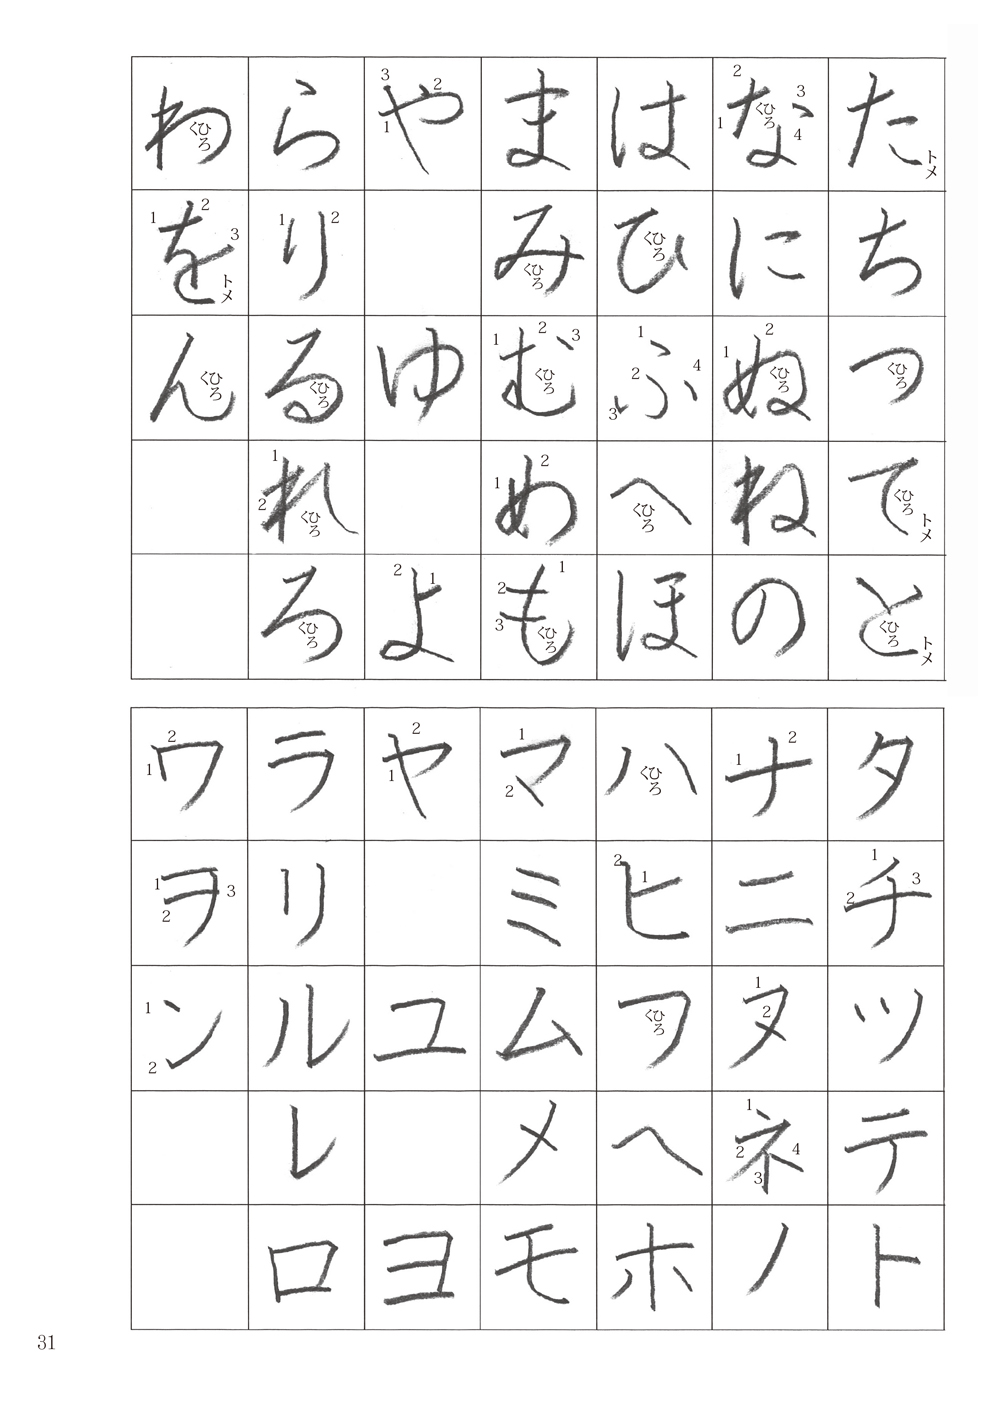 た トメ ち つ ひろく て ひろく トメ と ひろく トメ
な 1 2 3 4 ひろく に ぬ 1 2 ひろく ね の
は ひ ひろく ふ 1 2 3 4 へ ひろく ほ
ま み ひろく む 1 2 3 ひろく め 1 2 も 1 2 3 ひろく
や 1 2 3 ゆ よ 1 2
ら り 1 2 る ひろく れ 1 2 ひろく ろ ひろく
わ ひろく を 1 2 3 トメ ん ひろく
タ チ 1 2 3 ツ テ ト
ナ 1 2 ニ ヌ 1 2 ネ 1 2 3 4 ノ
ハ ひろく ヒ 1 2 フ ひろく ヘ ホ
マ 1 2 ミ ム メ モ
ヤ 1 2 ユ ヨ
ラ リ ル レ ロ
ワ 1 2 ヲ 1 2 3 ン 1 2
31